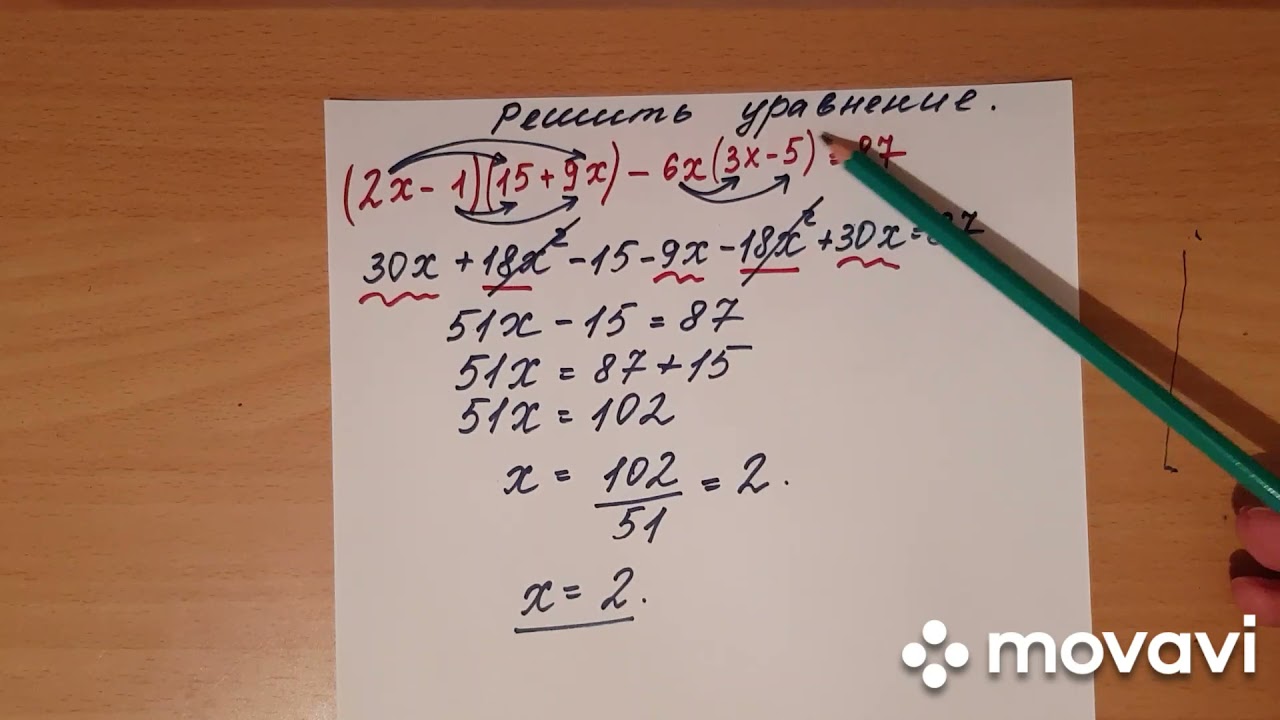 Решить уравнение.
(2x - 1)(15 + 9x) - 6x(3x - 5) = 87
30x + 18x² - 15 - 9x - 18x² + 30x = 87
51x - 15 = 87
51x = 87 + 15
51x = 102
x = 102/51 = 2.
x = 2.
movavi